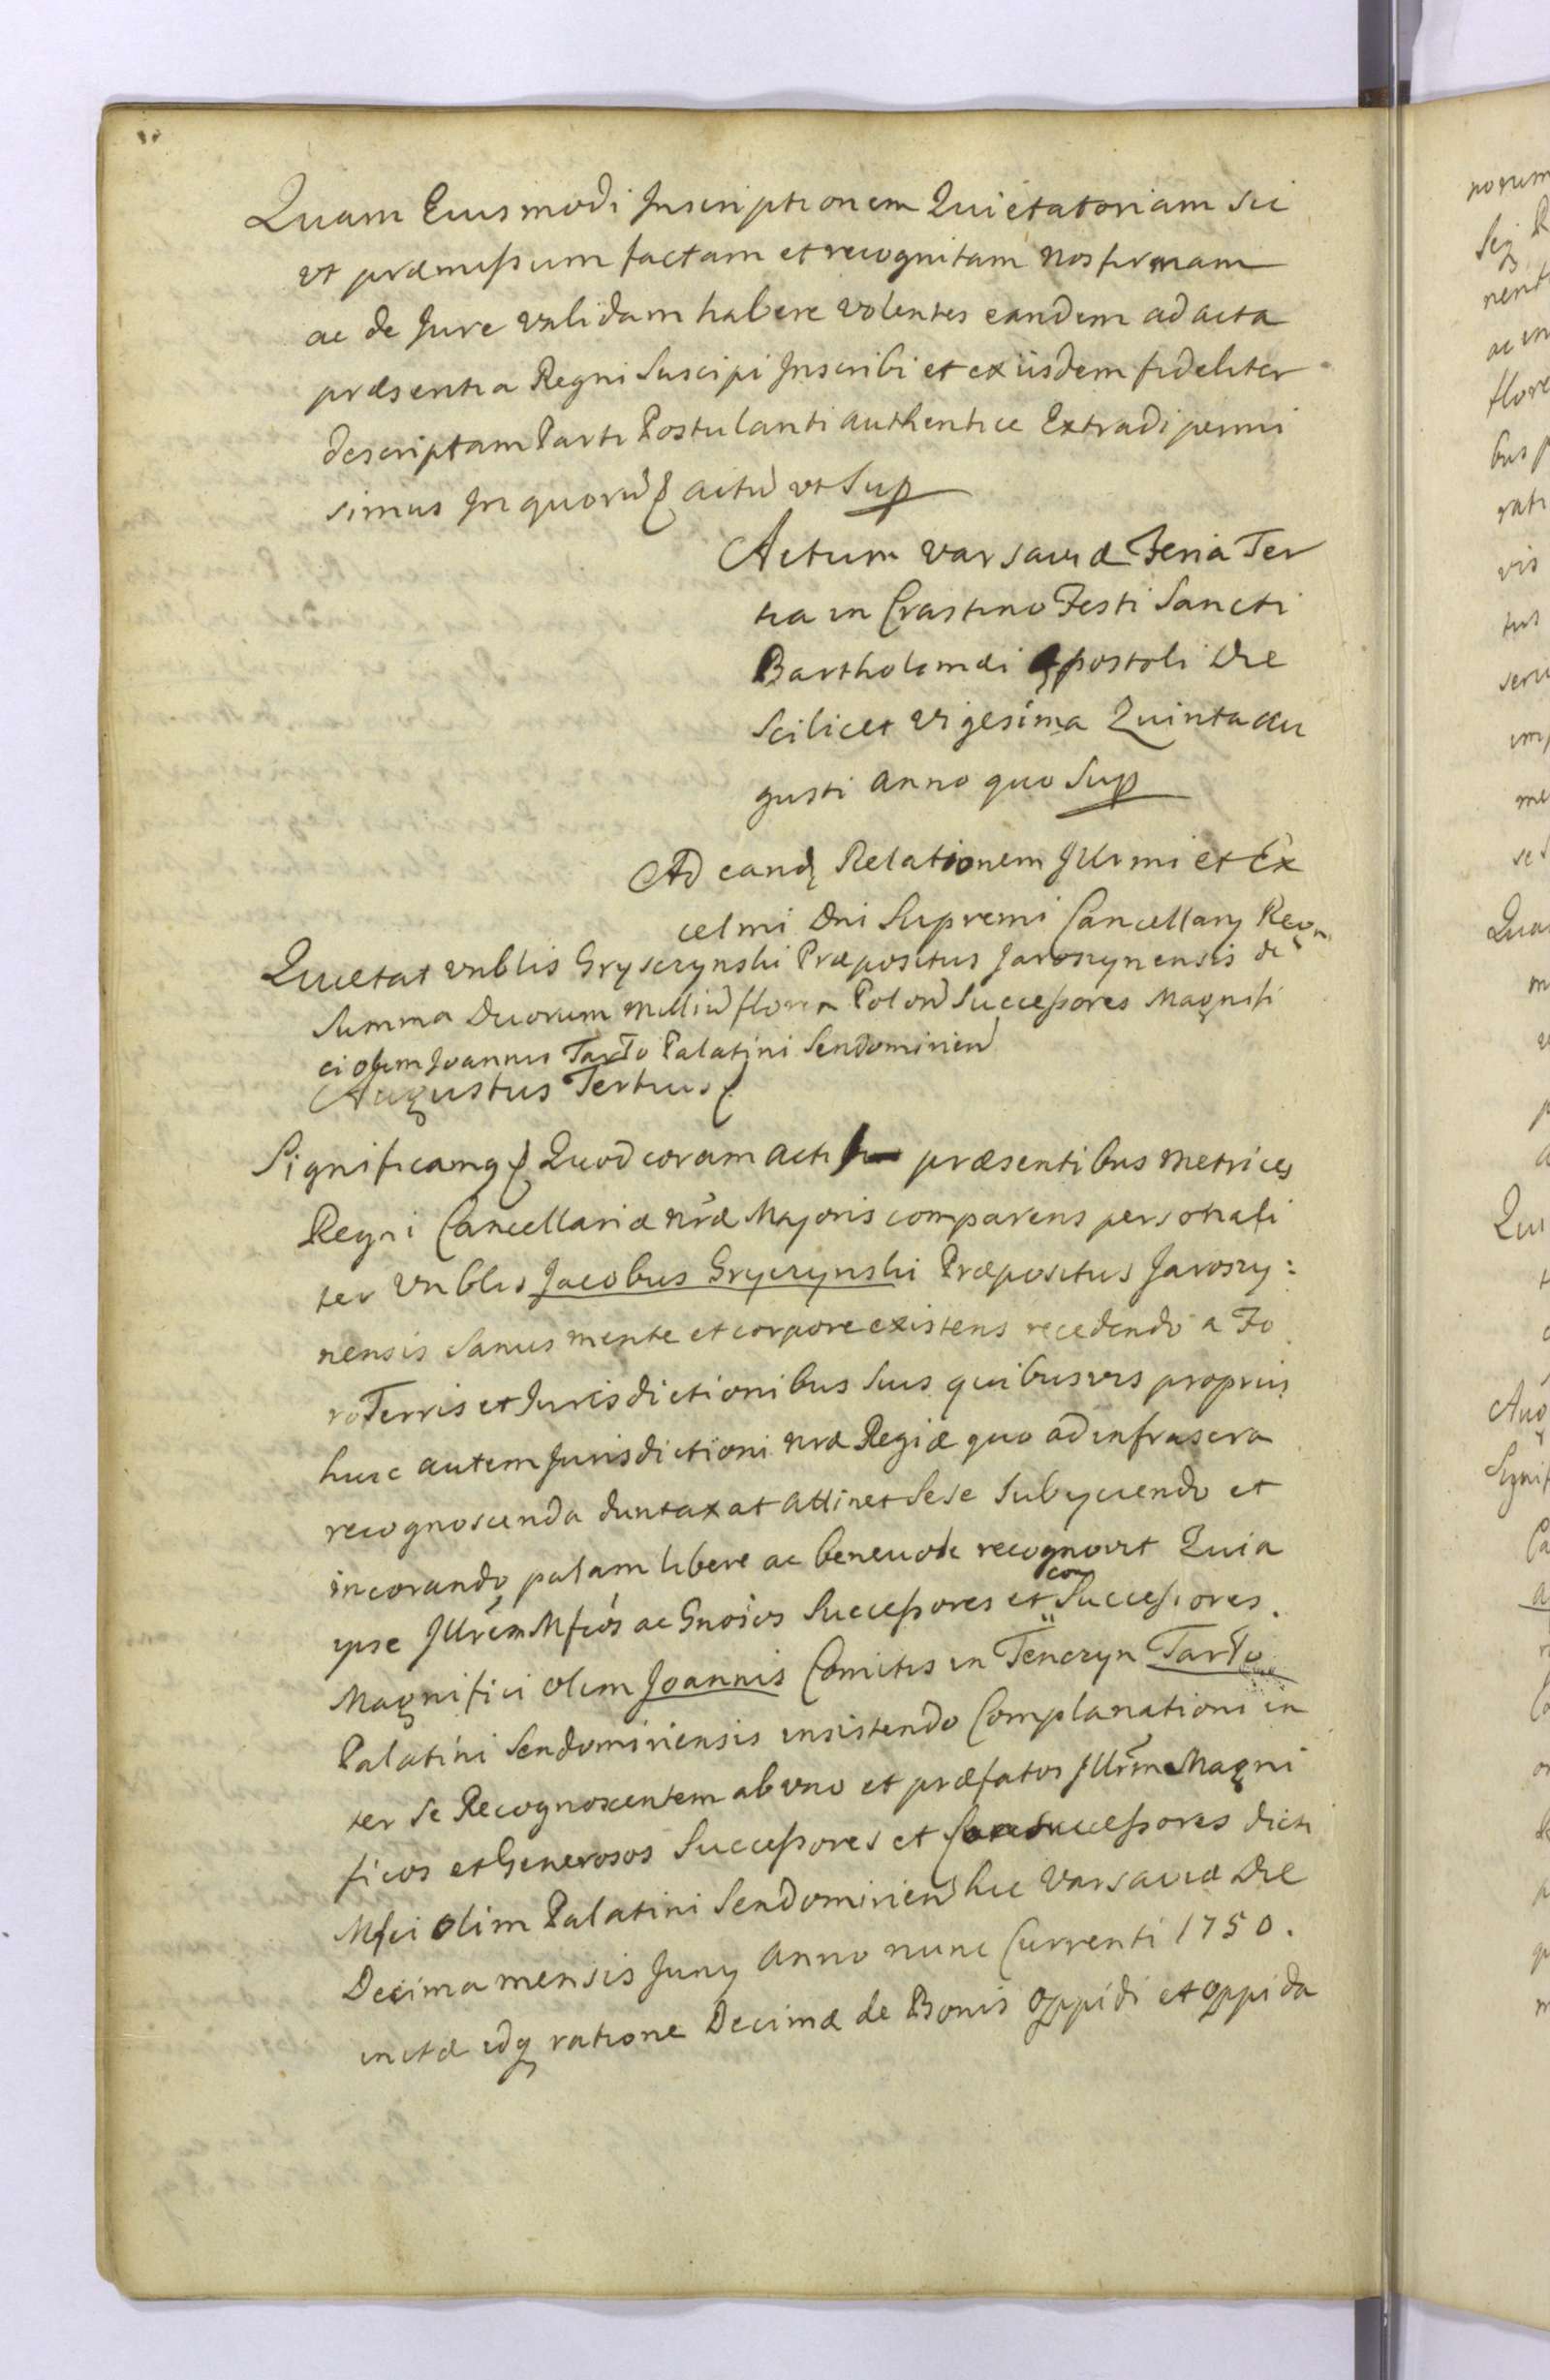 Quam Eiusmodi Inscriptionem Quietatoriam sic
ut præmissum factam et recognitam nos firmam
ac de Jure validam habere volentes eandem ad acta
præsentia Regni Suscipi Inscribi et ex iisdem fideliter
descriptam Parti Postulanti authentice Extradi permi
simus In quorũ actũ ut Sup
Actum Varsaviæ Feria Ter
tia in Crastino Festi Sancti
Bartholomæi Apostoli Die
Scilicet Vigesima Quinta Au
gusti anno quo Sup
Ad eandq Relationem Illrmi et Ex
celmi Dni Supremi Cancellarij Regn
Quietat vnblis Gryszynski Præpositus Jaroszynensis de
Summa Duorum milliũ floren Polonũ Successores Magnifi
ci olim Joannis Tarło Palatini Sendomirien
Augustus Tertius
Significamq Quod coram actis præsentibus metrices
Regni Cancellariæ nræ Majoris comparens personali
ter vnblis Jacobus Gryczynski Præpositus Jaroszy:
nensis Sanus mente et corpore existens recedendo a Fo
ro Terris et Jurisdictionibus Suis quibusvis proprijs
huic autem Jurisdictioni nræ Regiæ quo ad infrascra
recognoscenda duntaxat attinet Sese Subijciendo et
incorando, palam libere ac benevole recognovit Quia
ipse Illrem Mficos ac Gnosos Successores et con Successores
Magnifici olim Joannis Comitis in Tenczyn Tarło
Palatini Sendomiriensis insistendo Complanationi in
ter Se Recognoscentem ab uno et præfatos Illrm Magni
ficos et Generosos Successores et Consuccessores dicti
Mfci olim Palatini Sendomirien hic Varsaviæ Die
Decima mensis Junij Anno nunc Currenti 1750.
initæ idq ratione Decimæ de Bonis Oppidi et oppida